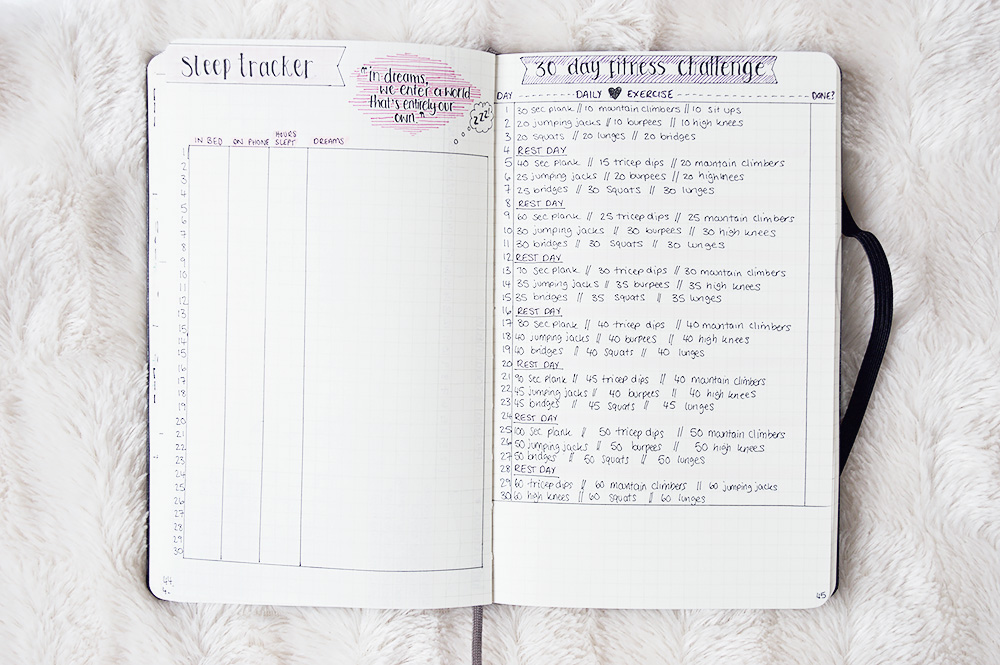 Sleep tracker
"in dreams,
we enter a world
that's entirely our
own."
zzz
IN BED ON PHONE HOURS SLEPT DREAMS
1
2
3
4
5
6
7
8
9
10
11
12
13
14
15
16
17
18
19
20
21
22
23
24
25
26
27
28
29
30
44
30 day fitness challenge
DAY DAILY ♥ EXERCISE DONE?
1 30 sec plank // 10 mountain climbers // 10 sit ups
2 20 jumping jacks // 10 burpees // 10 high knees
3 20 squats // 20 lunges // 20 bridges
4 REST DAY
5 40 sec plank // 15 tricep dips // 20 mountain climbers
6 25 jumping jacks // 20 burpees // 20 high knees
7 25 bridges // 30 squats // 30 lunges
8 REST DAY
9 60 sec plank // 25 tricep dips // 25 mountain climbers
10 30 jumping jacks // 30 burpees // 30 high knees
11 30 bridges // 30 squats // 30 lunges
12 REST DAY
13 70 sec plank // 30 tricep dips // 30 mountain climbers
14 35 jumping jacks // 35 burpees // 35 high knees
15 35 bridges // 35 squats // 35 lunges
16 REST DAY
17 80 sec plank // 40 tricep dips // 40 mountain climbers
18 40 jumping jacks // 40 burpees // 40 high knees
19 40 bridges // 40 squats // 40 lunges
20 REST DAY
21 90 sec plank // 45 tricep dips // 40 mountain climbers
22 45 jumping jacks // 40 burpees // 40 high knees
23 45 bridges // 45 squats // 45 lunges
24 REST DAY
25 100 sec plank // 50 tricep dips // 50 mountain climbers
26 50 jumping jacks // 50 burpees // 50 high knees
27 50 bridges // 50 squats // 50 lunges
28 REST DAY
29 60 tricep dips // 60 mountain climbers // 60 jumping jacks
30 60 high knees // 60 squats // 60 lunges
45